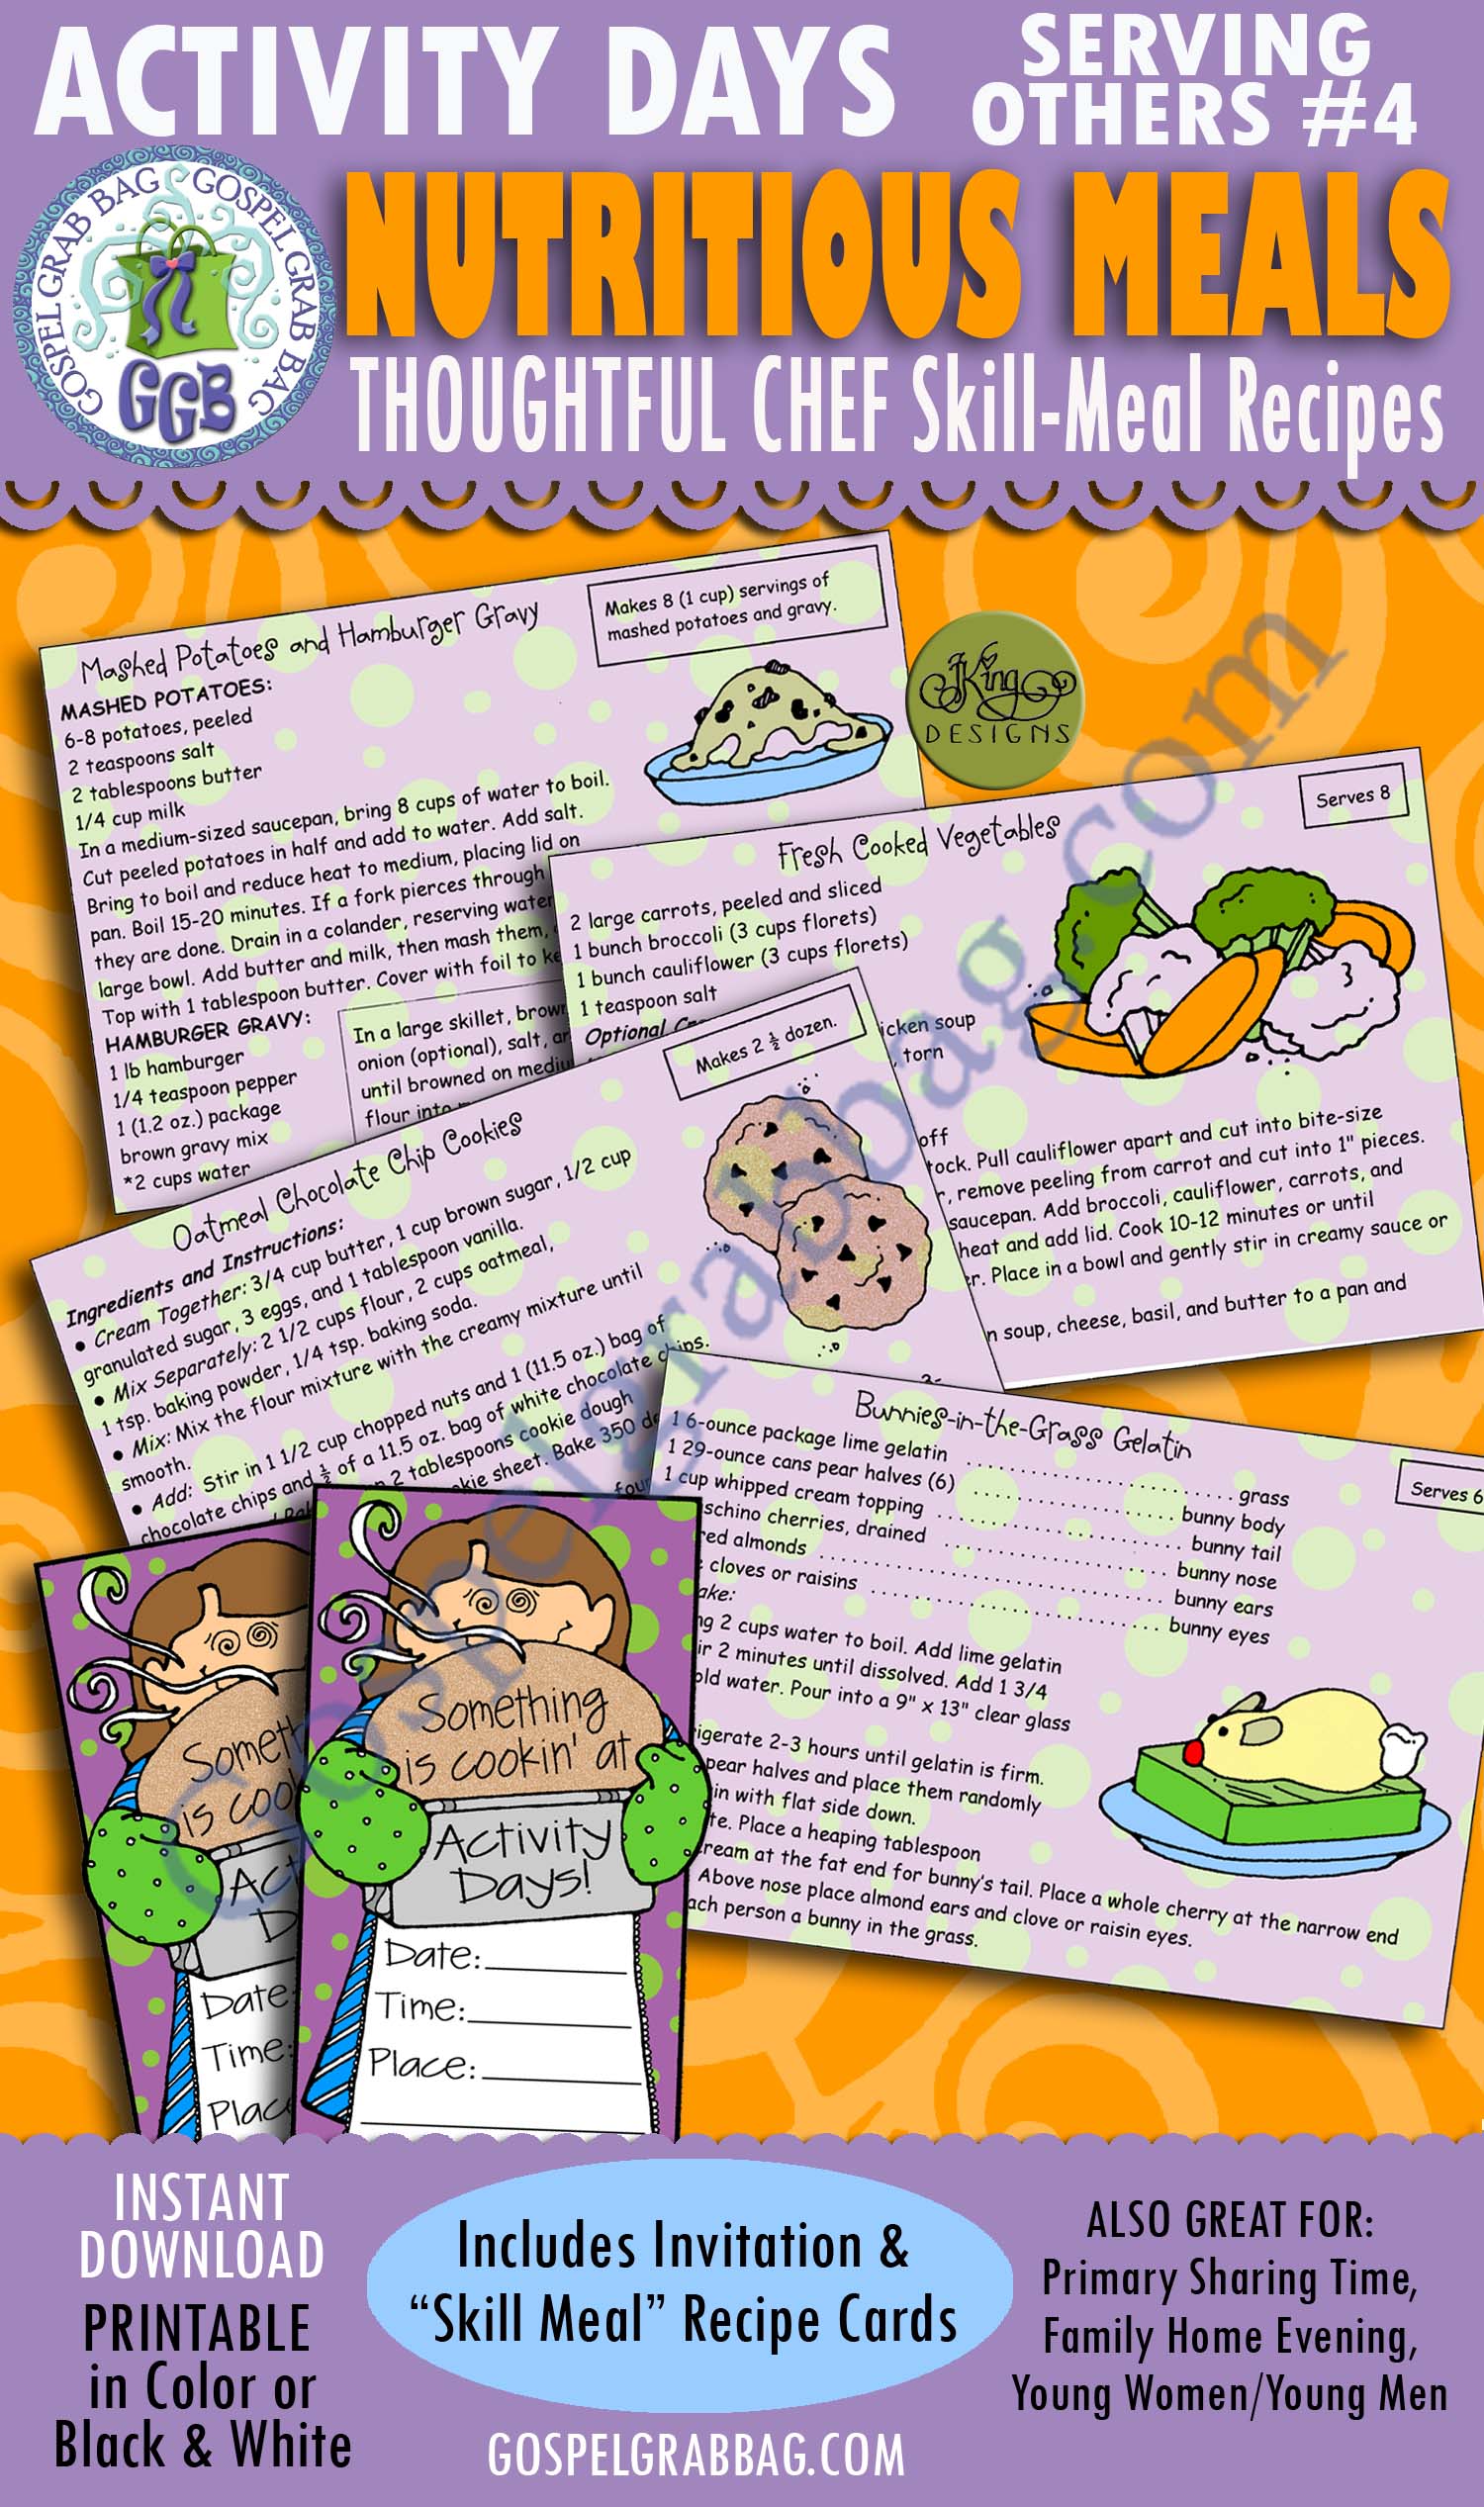 ACTIVITY DAYS
SERVING
OTHERS #4
GOSPEL GRAB BAG GOSPEL GRAB BAG
GGB
NUTRITIOUS MEALS
THOUGHTFUL CHEF Skill-Meal Recipes
Mashed Potatoes and Hamburger Gravy
Makes 8 (1 cup) servings of
mashed potatoes and gravy.
MASHED POTATOES:
6-8 potatoes, peeled
2 teaspoons salt
2 tablespoons butter
1/4 cup milk
In a medium-sized saucepan, bring 8 cups of water to boil.
Cut peeled potatoes in half and add to water. Add salt.
Bring to boil and reduce heat to medium, placing lid on
pan. Boil 15-20 minutes. If a fork pierces through
they are done. Drain in a colander, reserving water
large bowl. Add butter and milk, then mash them,
Top with 1 tablespoon butter. Cover with foil to
HAMBURGER GRAVY:
1 lb hamburger
1/4 teaspoon pepper
1 (1.2 oz.) package
brown gravy mix
*2 cups water
In a large skillet, brown
onion (optional), salt,
until browned on
flour into
JKing
DESIGNS
Fresh Cooked Vegetables
Serves 8
2 large carrots, peeled and sliced
1 bunch broccoli (3 cups florets)
1 bunch cauliflower (3 cups florets)
1 teaspoon salt
Optional
icken soup
, torn
off
tock. Pull cauliflower apart and cut into bite-size
r, remove peeling from carrot and cut into 1" pieces.
saucepan. Add broccoli, cauliflower, carrots, and
heat and add lid. Cook 10-12 minutes or until
er. Place in a bowl and gently stir in creamy sauce or
n soup, cheese, basil, and butter to a pan and
Oatmeal Chocolate Chip Cookies
Makes 2 ½ dozen.
Ingredients and Instructions:
• Cream Together: 3/4 cup butter, 1 cup brown sugar, 1/2 cup
granulated sugar, 3 eggs, and 1 tablespoon vanilla.
• Mix Separately: 2 1/2 cups flour, 2 cups oatmeal,
1 tsp. baking powder, 1/4 tsp. baking soda.
• Mix: Mix the flour mixture with the creamy mixture until
smooth.
• Add: Stir in 1 1/2 cup chopped nuts and 1 (11.5 oz.) bag of
chocolate chips and ½ of a 11.5 oz. bag of white chocolate chips.
2 tablespoons cookie dough
kie sheet. Bake 350
Bunnies-in-the-Grass Gelatin
Serves 6
1 6-ounce package lime gelatin .................... grass
1 29-ounce cans pear halves (6) .................... bunny body
1 cup whipped cream topping .................... bunny tail
schino cherries, drained .................... bunny nose
red almonds .................... bunny ears
cloves or raisins .................... bunny eyes
ake:
ng 2 cups water to boil. Add lime gelatin
ir 2 minutes until dissolved. Add 1 3/4
old water. Pour into a 9" x 13" clear glass
igerate 2-3 hours until gelatin is firm.
pear halves and place them randomly
in with flat side down.
te. Place a heaping tablespoon
ream at the fat end for bunny's tail. Place a whole cherry at the narrow end
Above nose place almond ears and clove or raisin eyes.
ach person a bunny in the grass.
Someth
is coo
Act
D
Date:
Time:
Place
Something
is cookin' at
Activity
Days!
Date:
Time:
Place:
Gospelgrabbag.com
INSTANT
DOWNLOAD
PRINTABLE
in Color or
Black & White
Includes Invitation &
“Skill Meal” Recipe Cards
GOSPELGRABBAG.COM
ALSO GREAT FOR:
Primary Sharing Time,
Family Home Evening,
Young Women/Young Men